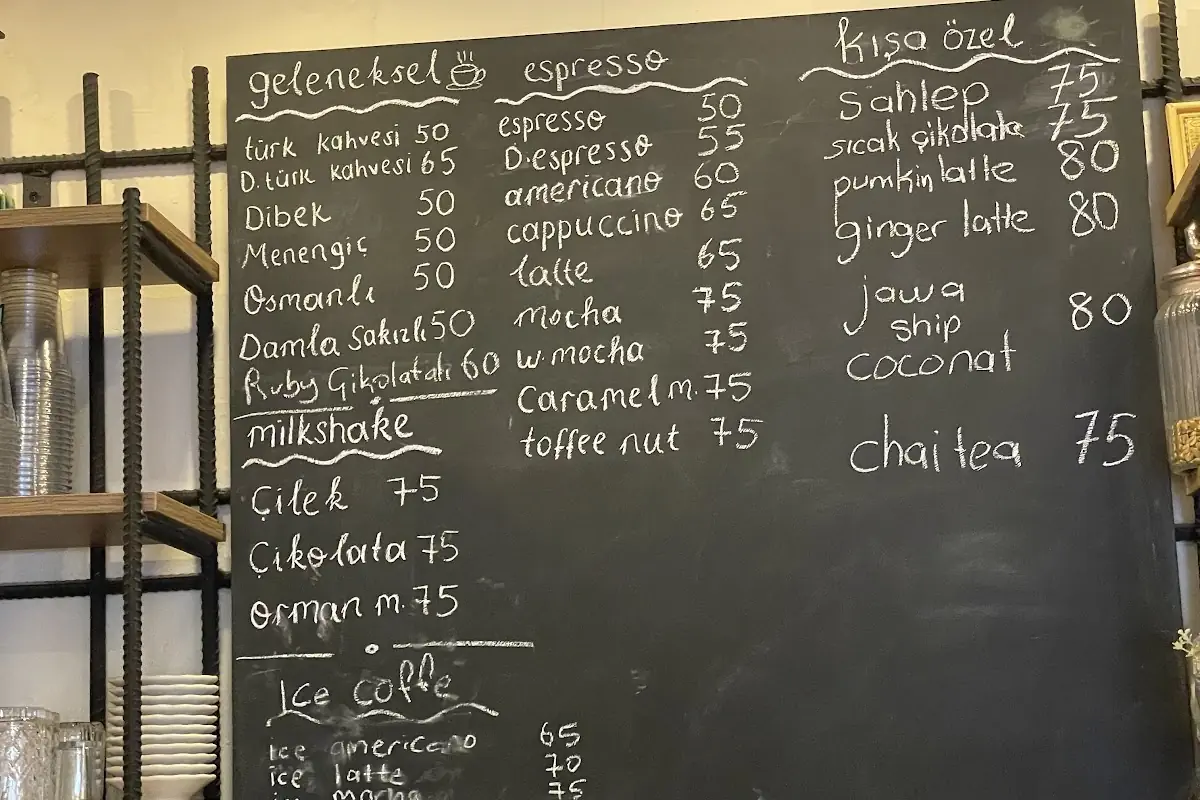 geleneksel
türk kahvesi 50
D. türk kahvesi 65
Dibek 50
Menengiç 50
Osmanlı 50
Damla Sakızlı 50
Ruby Çikolatalı 60
milkshake
Çilek 75
Çikolata 75
orman m. 75
Ice coffe
ice americano 65
ice latte 70
ice mocha 75
espresso
espresso 50
D.espresso 55
americano 60
cappuccino 65
latte 65
mocha 75
w.mocha 75
Caramel m. 75
toffee nut 75
kışa özel
Sahlep 75
sıcak çikolata 75
pumkin latte 80
ginger latte 80
jawa
ship 80
coconat
chai tea 75